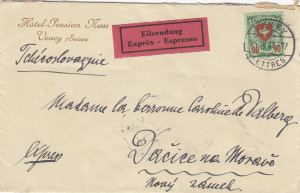 Hôtel-Pension Nuss
Vevey (Suisse)
Eilsendung
Exprès - Espresso
90 90
LETTRES
Tchécoslovaquie
Madame la baronne Caroline de Dalberg
Dačice na Moravě
Express
nový zámek.